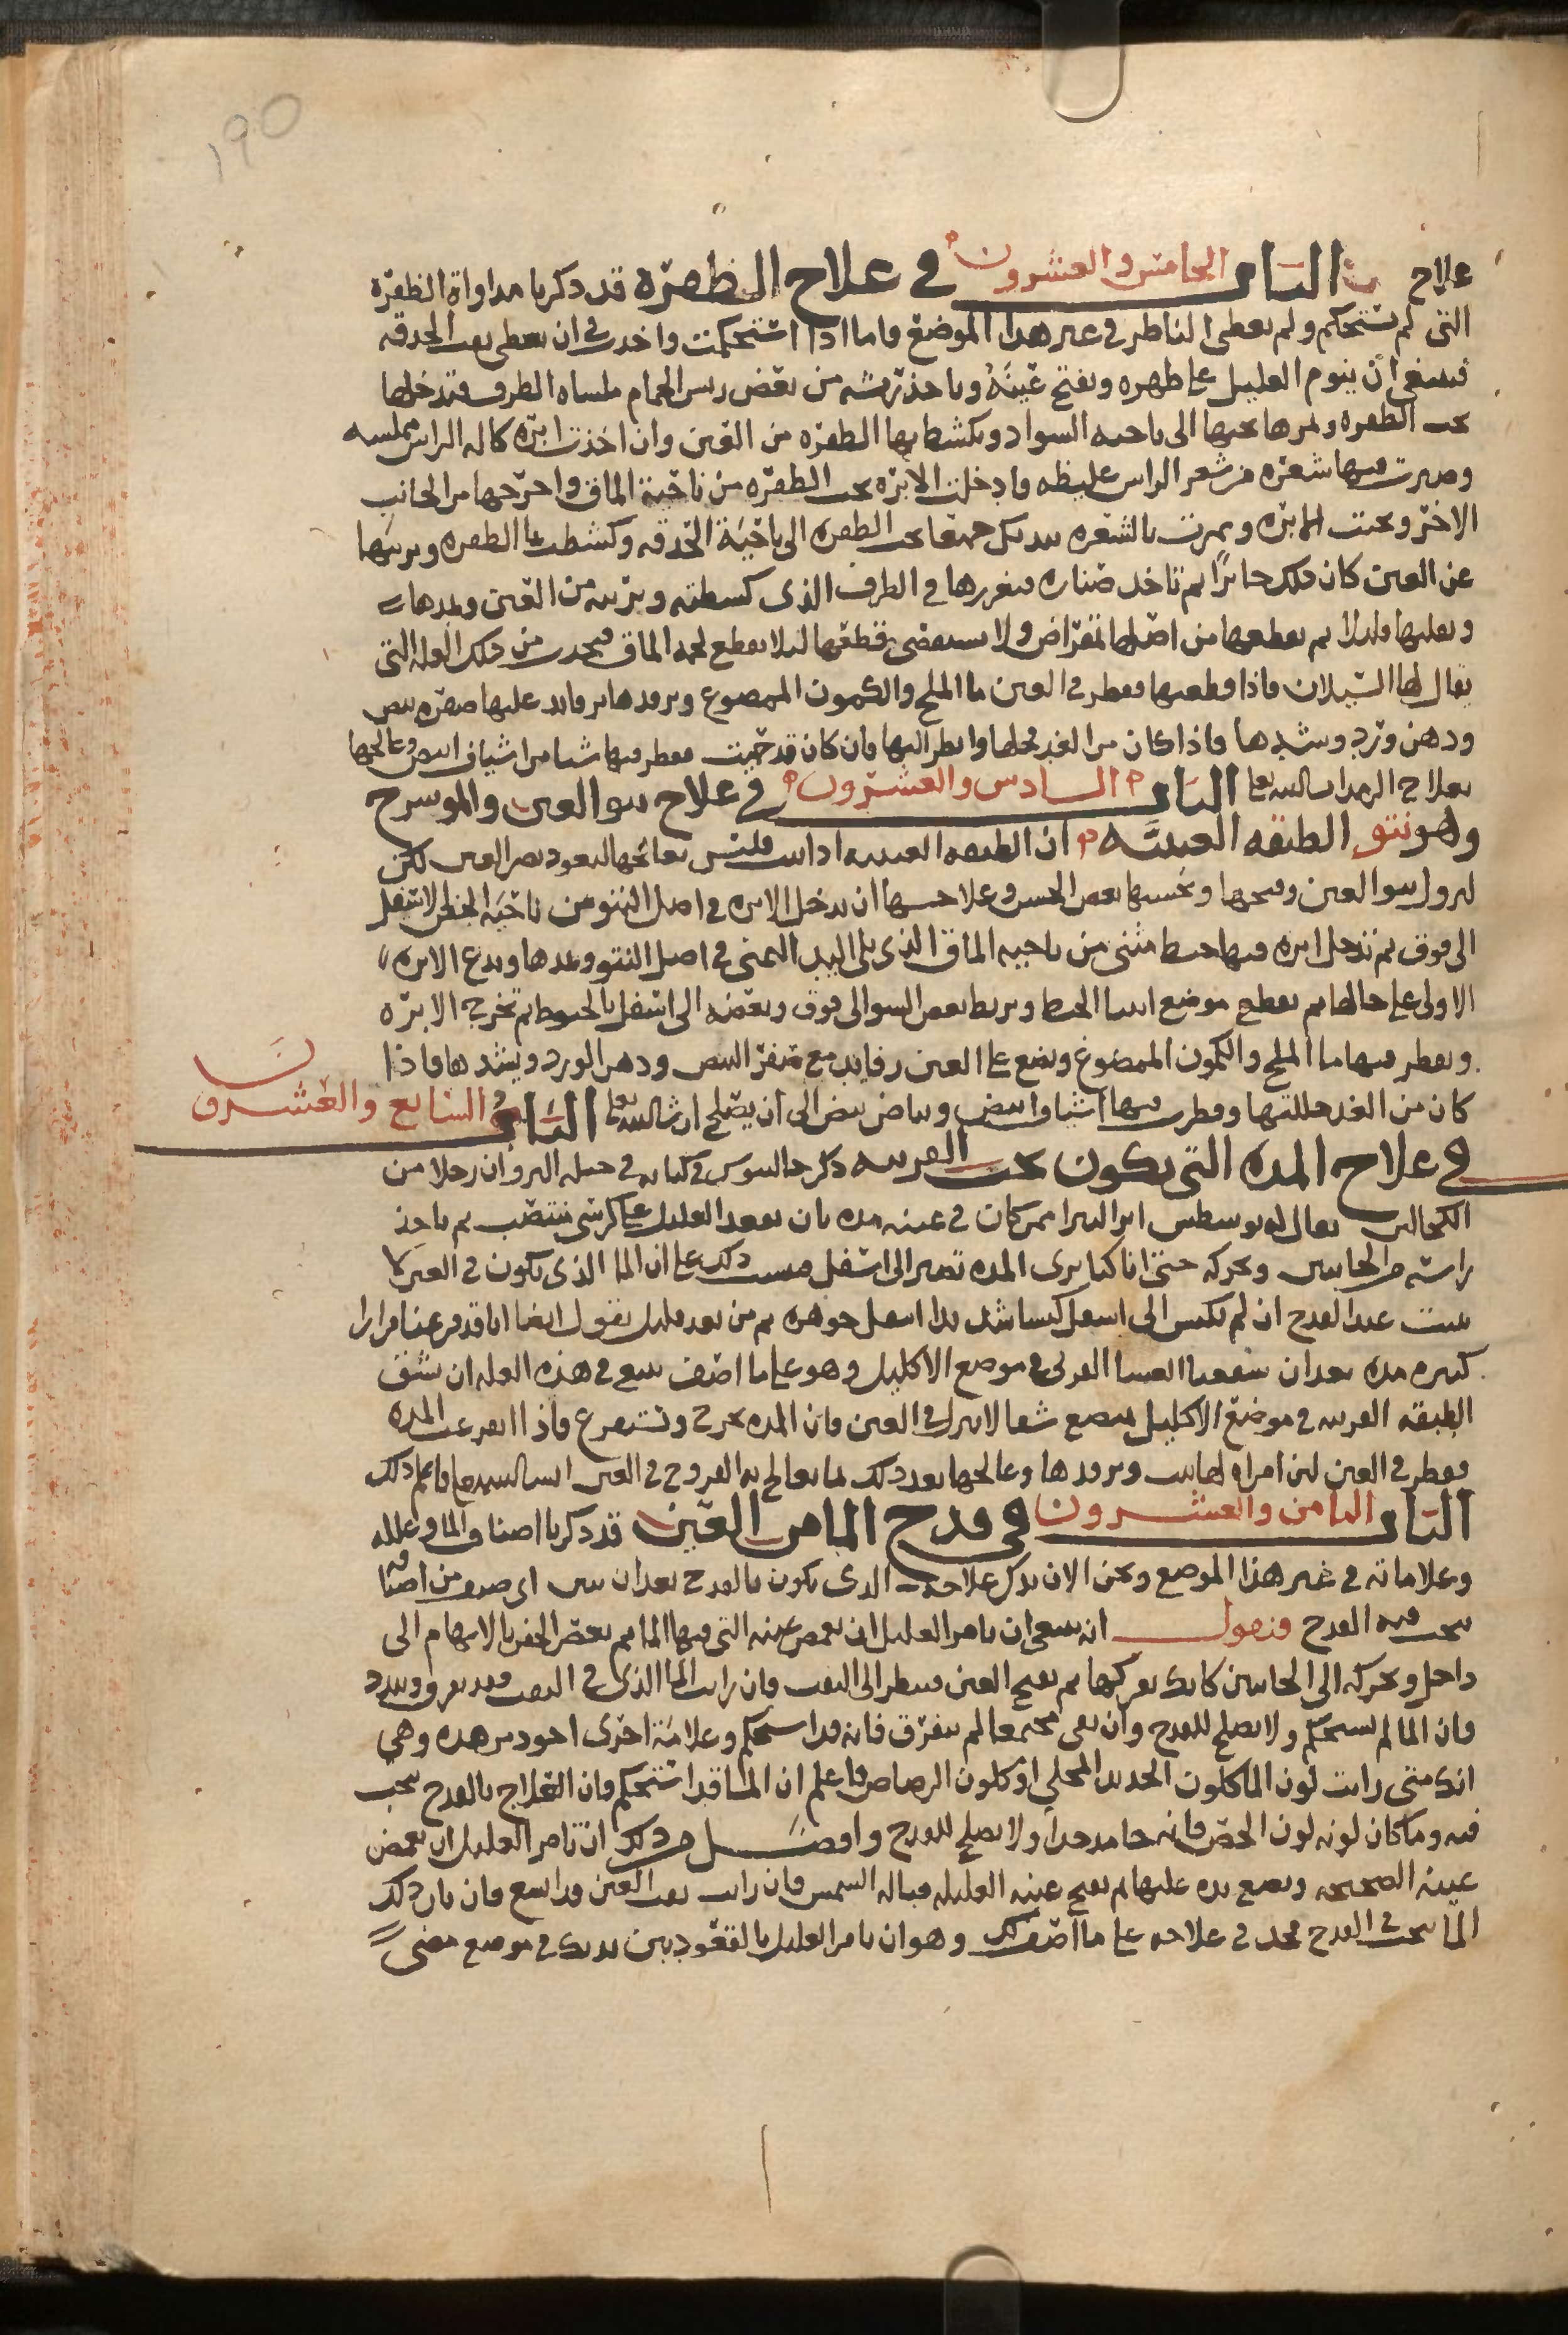 ١٩٥
علاح الباب الخامس والعشرون في علاج الظفرة قد ذكرنا مداواة الظفرة
التي لم تستحكم ولم تغطي الناظر في غير هذا الموضع واما اذا استحكمت واخذت في ان تغطي ثقب الحدقه
فينبغي أن ينوم العليل على ظهره وتفتح عينَهُ وتاخذ ريشه من بعض ريس الحمام ملساه الطرف فتدخلها
تحت الظفره وتمرها تحتها الى ناحيه السواد وتكشط بها الظفره من العين وان اخذت ابره كاله الراس مملسه
وصيرت فيها شعره من شعر الراس غليظه وادخلت الابره تحت الظفره من ناحية الماق واخرجتها من الجانب
الاخر ونحت الابره ومررت بالشعره بيديك جميعا تحت الظفره الى ناحيَة الحدقه وكشطت بها الظفره وبريتها
عن العين كان ذلك جائزًا ثم تاخذ صناره فتغررها في الطرف الذي كشطته وبريته من العين وتمدها
وتعليها قليلا ثم تقطعها من اصلها بمقراض ولا تستقصي قطعها ليلا تقطع لحمه الماق فيحدث من ذلك العله التي
يقال لها السيلان فاذا قطعتها فقطر في العين ما الملح والكمون الممضوغ وبرودها برفايد عليها صفره بيض
ودهن ورد وشدها فاذا كان من الغد فحلها وانظر اليها فان كان قد حميت فقطر فيها شيا من اشياف ابيض وعالجها
بعلاج الرمد ان شا الله تعا الباب السادس والعشرون في علاج نتو العين والموسرج
وهو نتو الطبقه العنبيَّه ان الطبقه العنبيه اذا نتت فليس نعالجها ليعود بصر العين لكن
ليزول نتو العين وقبحها وتحسنها بعض الحسن وعلاجها ان تدخل الابره في اصل النتو من ناحيَة الجفن الاسفل
الى فوق ثم تدخل ابره فيها خيط مثنى من ناحيه الماق الذي يلي اليد اليمنى في اصل النتو وتمدها وتدع الابره
الاولى على حالها ثم تقطع موضع انثنا الخيط وتربط بعض النتو الى فوق وبعضه الى اسفل بالخيوط ثم تخرج الابره
وتقطر فيها ما الملح والكمون الممضوغ وتضع على العين رفايد مع صفر البيض ودهن الورد وتشدها فاذا
كان من الغد حللتها وقطرت فيها اشياف ابيض وبياض بيض الى ان يصلح ان شا الله تعا الباب السابع والعشرون
في علاج المده التي تكون تحت القرنيه ذكر جالينوس في كتابه في حيله البرو ان رجلا من
الكحالين يقال له يوسطس ابرا كثيرا ممن كان في عينه مده بان يقعد العليل على كرسي منتصب ثم ياخذ
راسه من الجانبين ويحركه حتى انا كنا نرى المده تصير الى اسفل فيثبت ذلك على ان الما الذي يكون في العين لا
يثبت عند القدح ان لم يكبس الى اسفل كبسا شديدا لثقل جوهره ثم من بعد قليل يقول ايضا انا قد فرغنا مرارا
كثيره مده بعد ان شققنا الغشا القرني في موضع الاكليل وهو على ما اصف ينبغي في هذه العله ان تشق
الطبقه القرنيه في موضع الاكليل بمبضع شقا لا ينزل في العين فان المده تخرج وتستفرغ فاذا استفرغت المده
فقطر في العين لبن امراه لها بنت وبرودها وعالجها بعد ذلك بما تعالج به القروح في العين ان شا الله تعا فاعلم ذلك
الباب الثامن والعشرون في قدح الما من العين قد ذكرنا اصناف الما وعلله
وعلاماته في غير هذا الموضع ونحن الان نذكر علاجه الذي يكون بالقدح بعد ان نبين اي صنف من اصنافه
يجب فيه القدح فنقول انه ينبغي ان تامر العليل ان يغمض عينه التي فيها الما ثم تغمز الجفن بالابهام الى
داخل وتحركه الى الجانبين كانك تعركها ثم تفتح العين فتنظر الى الثقب فان رايت الما الذي في الثقب قد تفرق وتبدد
فان الما لم يستحكم ولا يصلح للقدح وان بقي مجتمعا لم يتفرق فانه قد استحكم وعلامة اخرى اجود من هذه وهي
انك متى رايت لون الما كلون الحديد المجلي او كلون الرصاص فاعلم ان الما قد استحكم وان العلاج بالقدح يجب
فيه وما كان لونه لون الجص فانه جامد جدا ولا يصلح للقدح وافضل من ذلك ان تامر العليل ان يغمض
عينه الصحيحه وتضع يده عليها ثم تفتح عينه العليله قباله الشمس فان رايت ثقب العين قد اتسع فان بان ذلك
الما يجب في القدح فخذ في علاجه على ما اصف لك وهو ان تامر العليل بالقعود بين يديك في موضع مضي